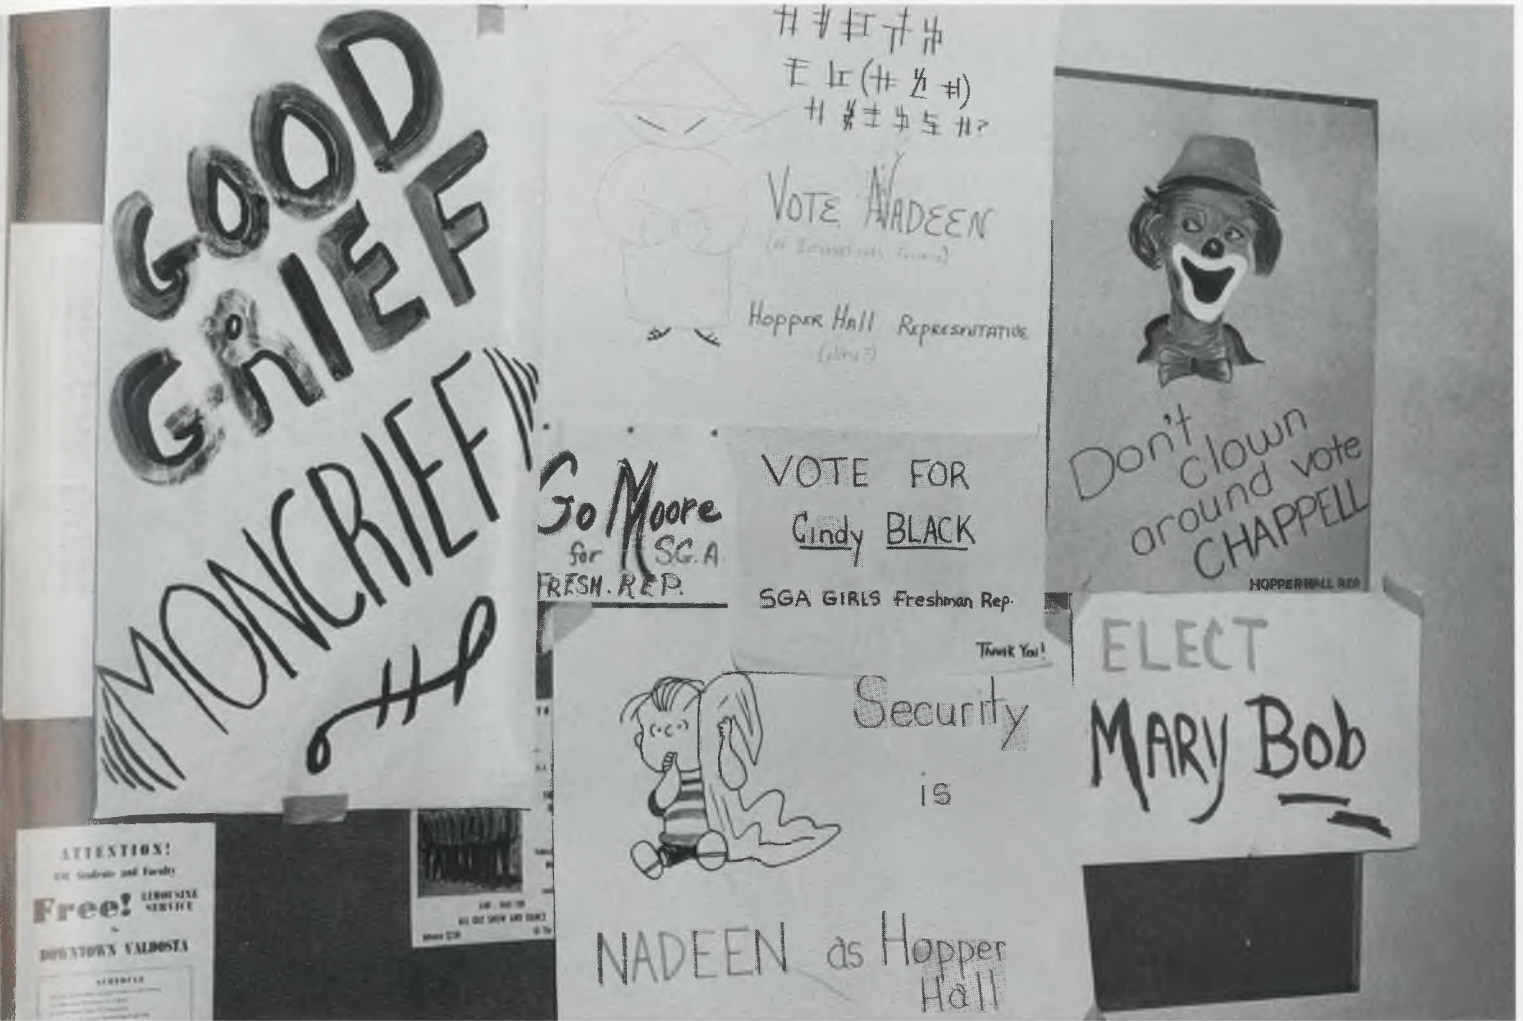 GOOD
GRIEF
MONCRIEF
VOTE NADEEN
HOPPER HALL REPRESENTATIVE
Don't
Clown
around vote
CHAPPELL
HOPPER HALL REP.
Go Moore
for SG.A.
FRESH. REP.
VOTE FOR
Cindy BLACK
SGA GIRLS Freshman Rep.
THANK YOU!
ELECT
MARY Bob
Security
is
NADEEN as Hopper
Hall
ATTENTION!
Students and Faculty
Free! LIMOUSINE
SERVICE
DOWNTOWN VALDOSTA
SCHEDULE
ALL OUT SHOW AND DANCE